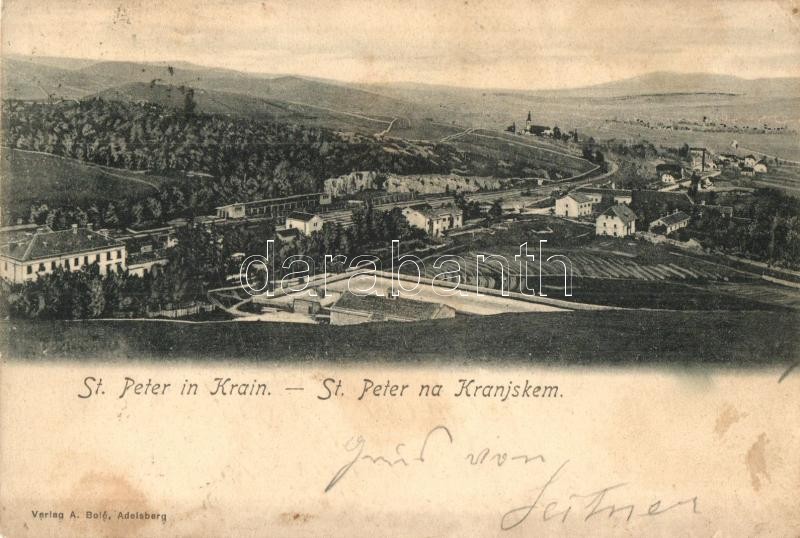 darabanth
St. Peter in Krain. — St. Peter na Kranjskem.
Grus von
Leitner
Verlag A. Bolé, Adelsberg